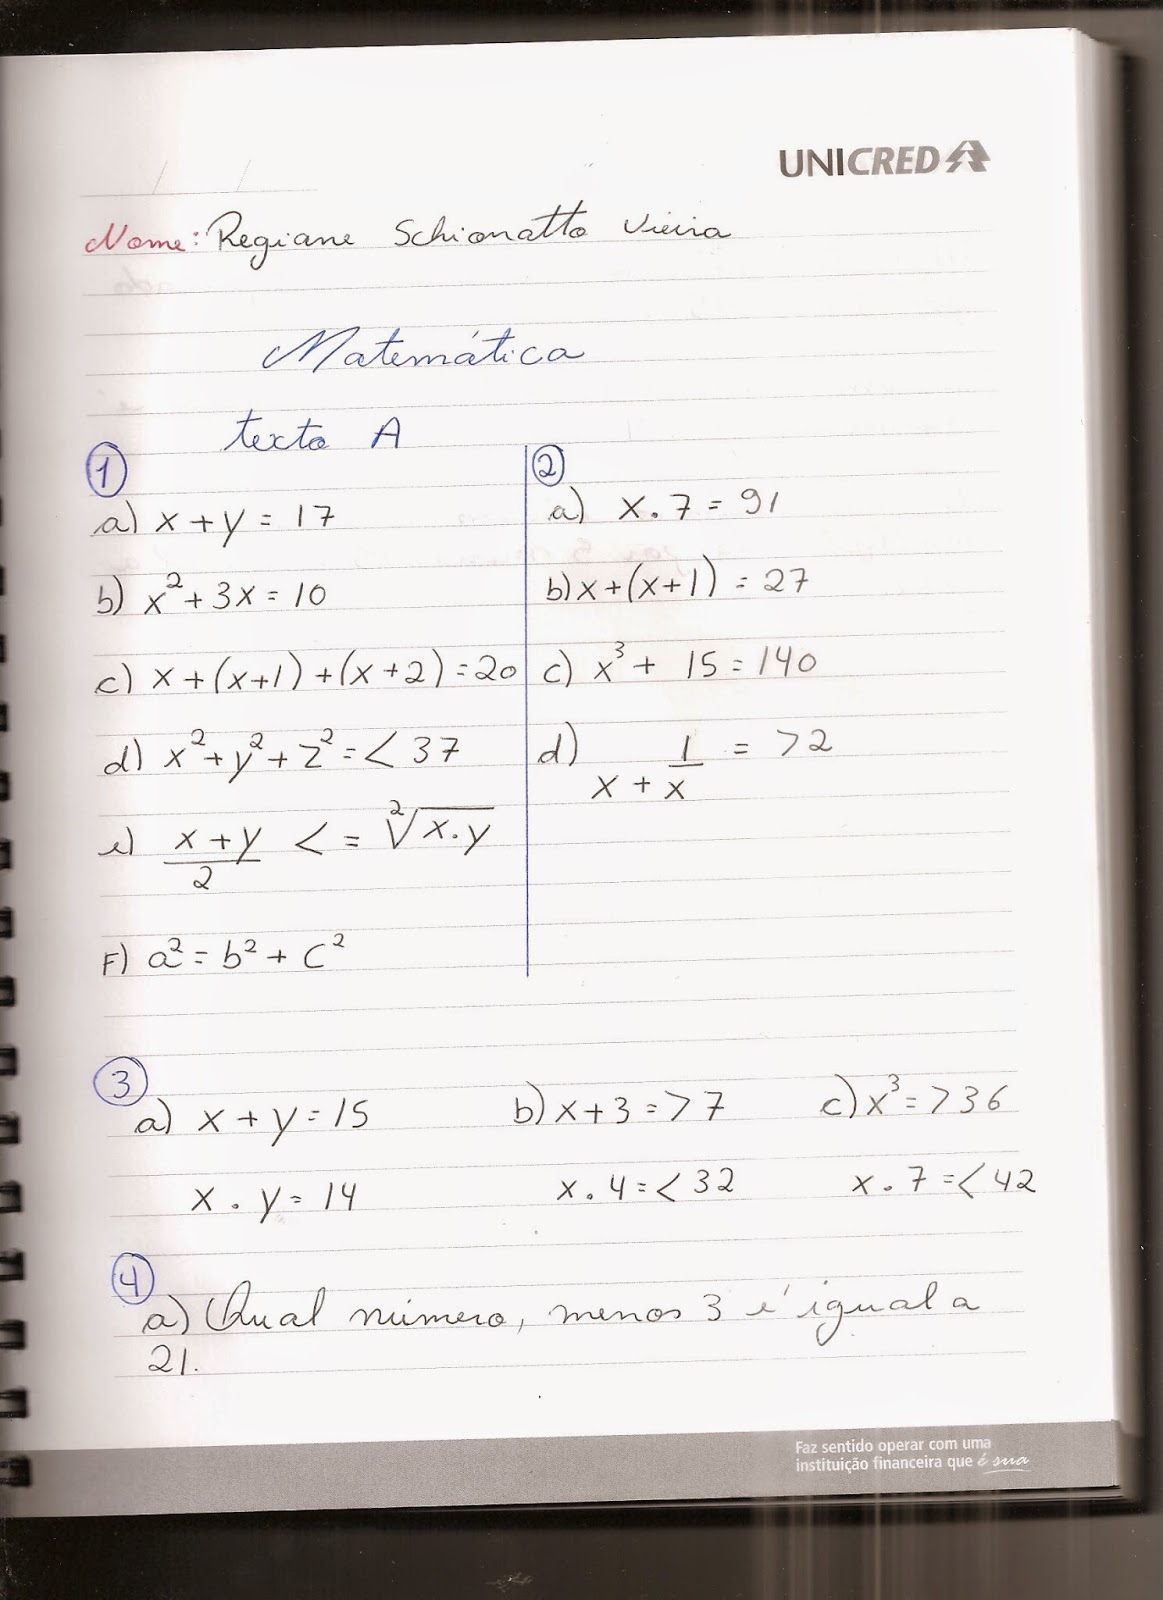 UNICRED
Nome: Regiane Schionatto Vieira
Matemática
texto A
1
a) x + y = 17
b) x² + 3x = 10
c) x + (x+1) + (x+2) = 20
d) x² + y² + z² = < 37
e) x + y / 2 < = ²√x.y
F) a² = b² + c²
2
a) x . 7 = 91
b) x + (x+1) = 27
c) x³ + 15 = 140
d) x + 1/x = > 2
3
a) x + y = 15
x . y = 14
b) x + 3 = > 7
x . 4 = < 32
c) x³ = > 36
x . 7 = < 42
4
a) Qual número, menos 3 é igual a
21.
Faz sentido operar com uma
instituição financeira que é sua